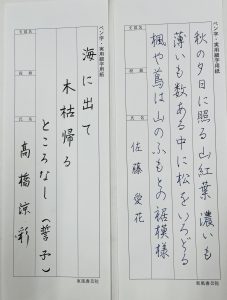 ペン字・実用細字用紙
秋の夕日に照る山紅葉 濃いも
薄いも数ある中に松をいろどる
楓や蔦は山のふもとの裾模様
支部名
氏名
佐藤 愛花
ペン字・実用細字用紙
海に出て
木枯帰る
ところなし (誓子)
支部名
氏名
高橋 涼彩